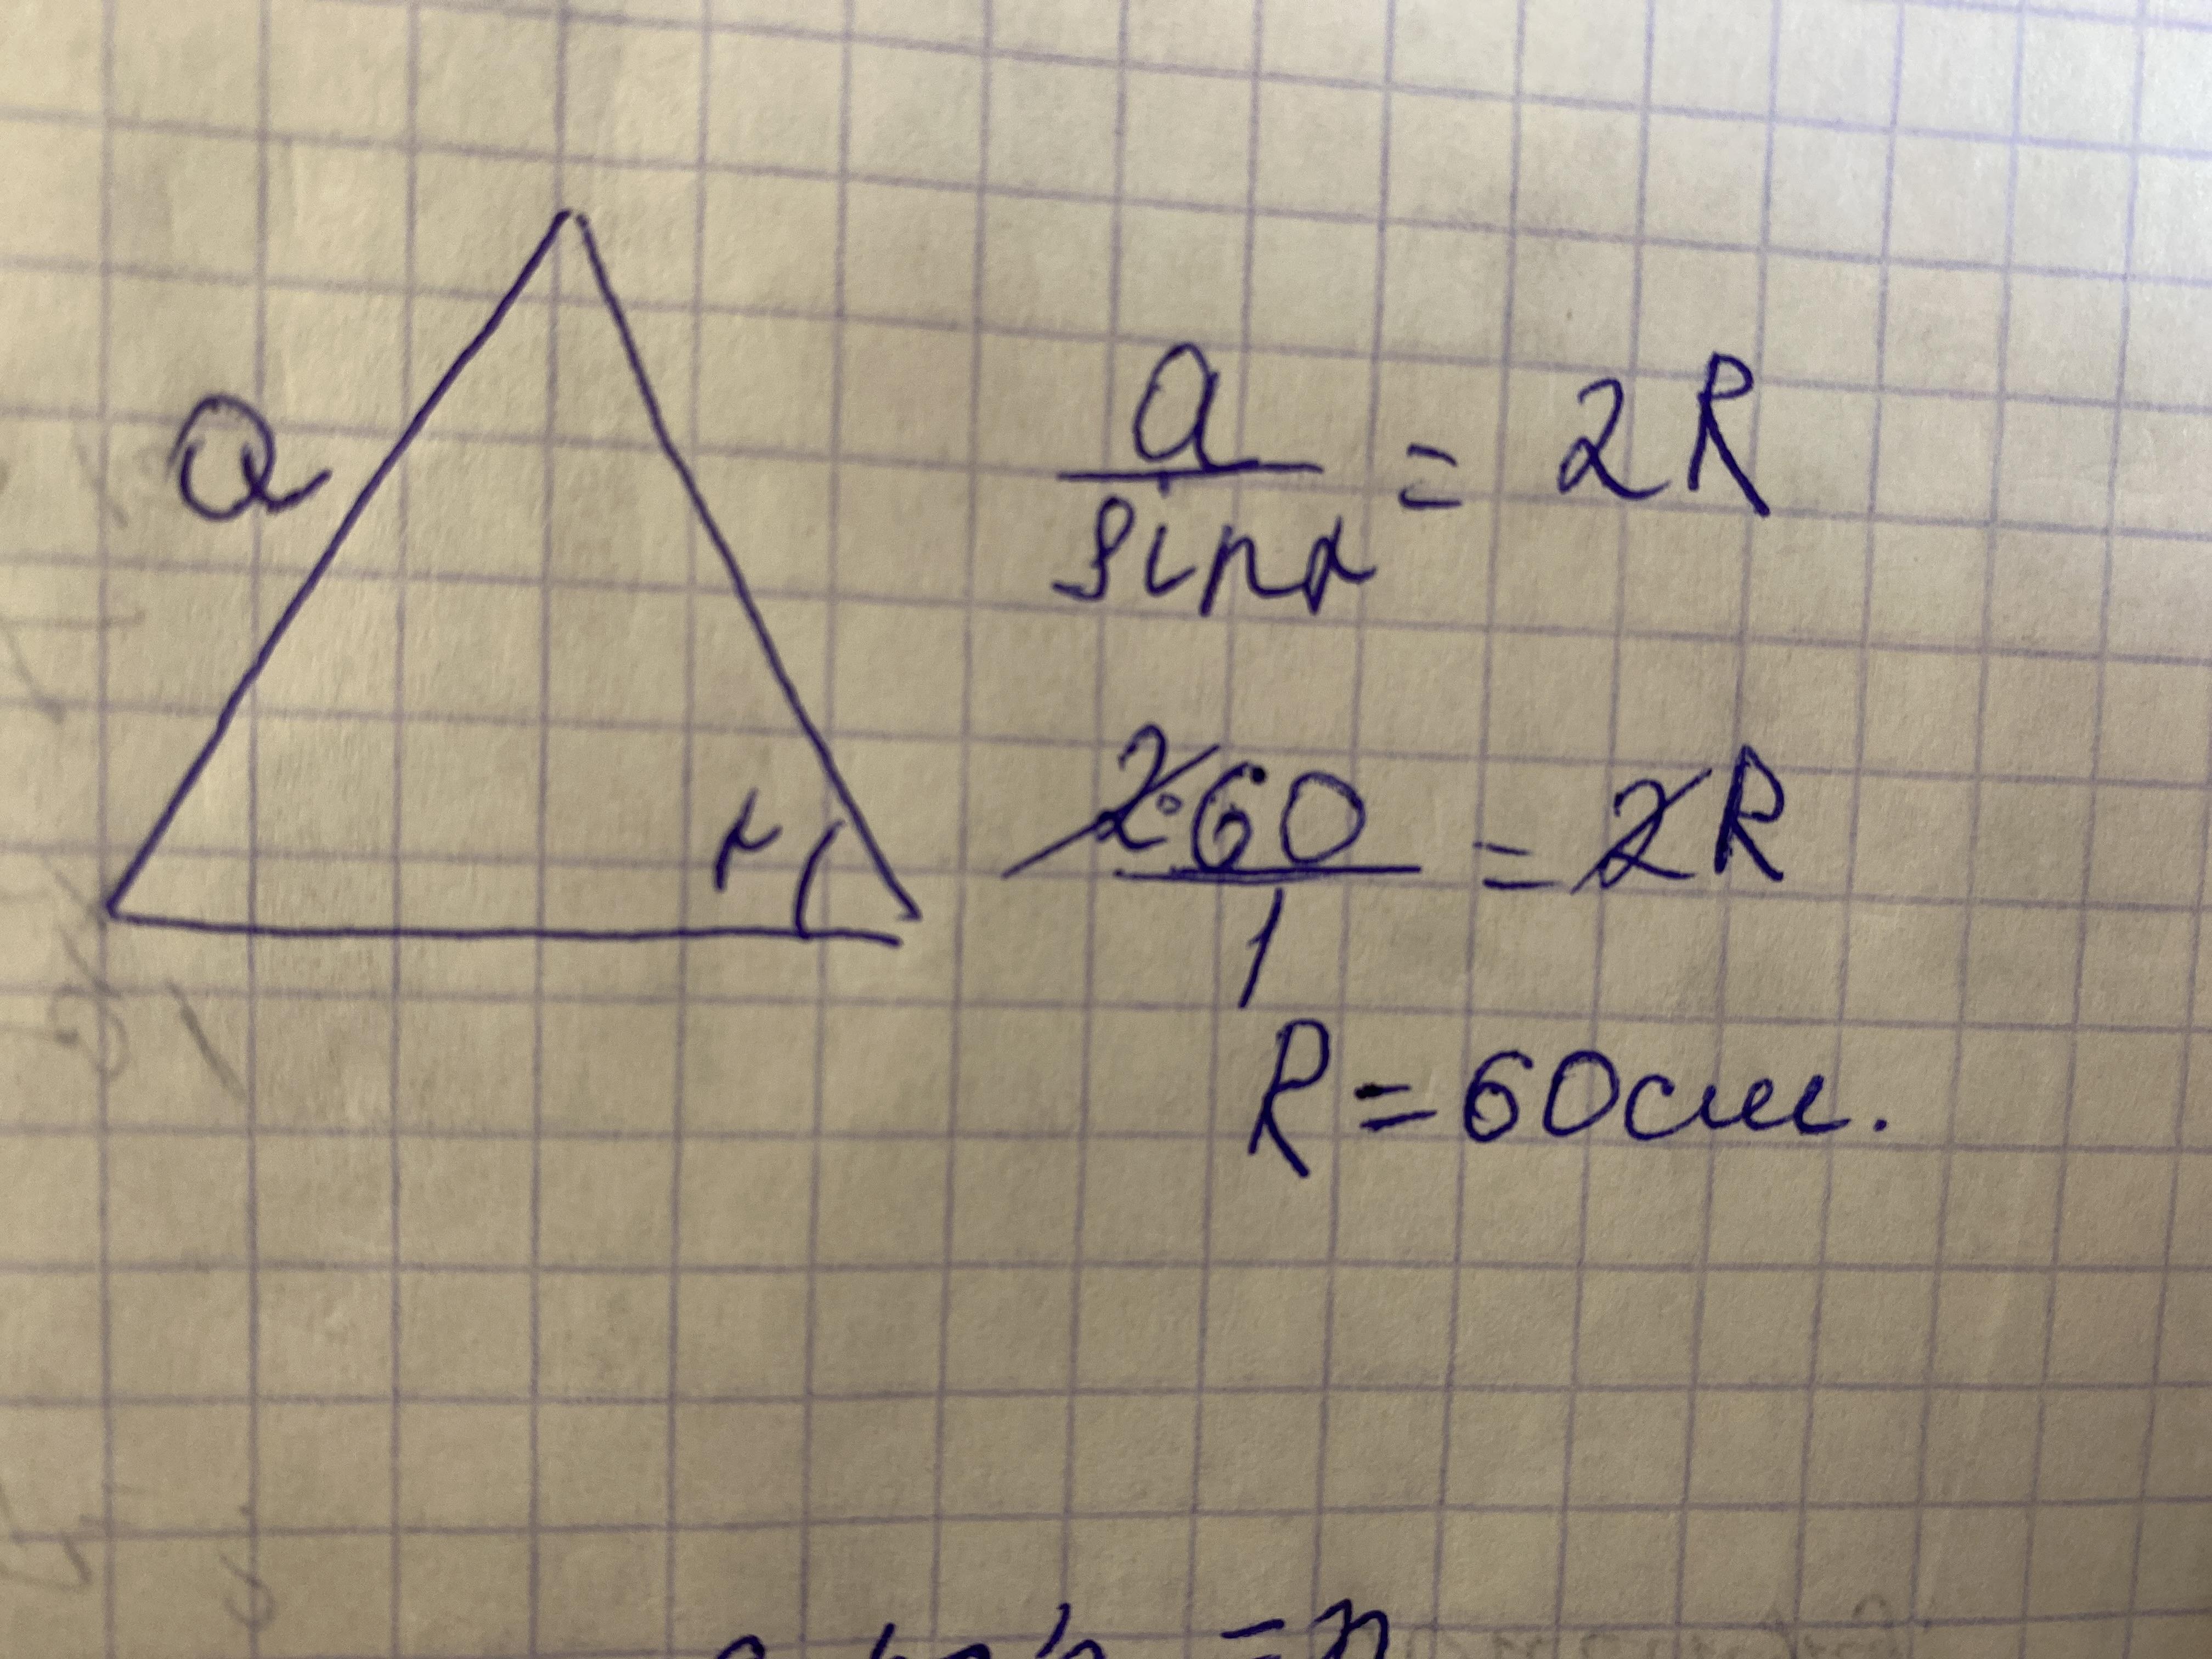 a
a
sinα = 2R
2·60
1 = 2R
α
R = 60см.